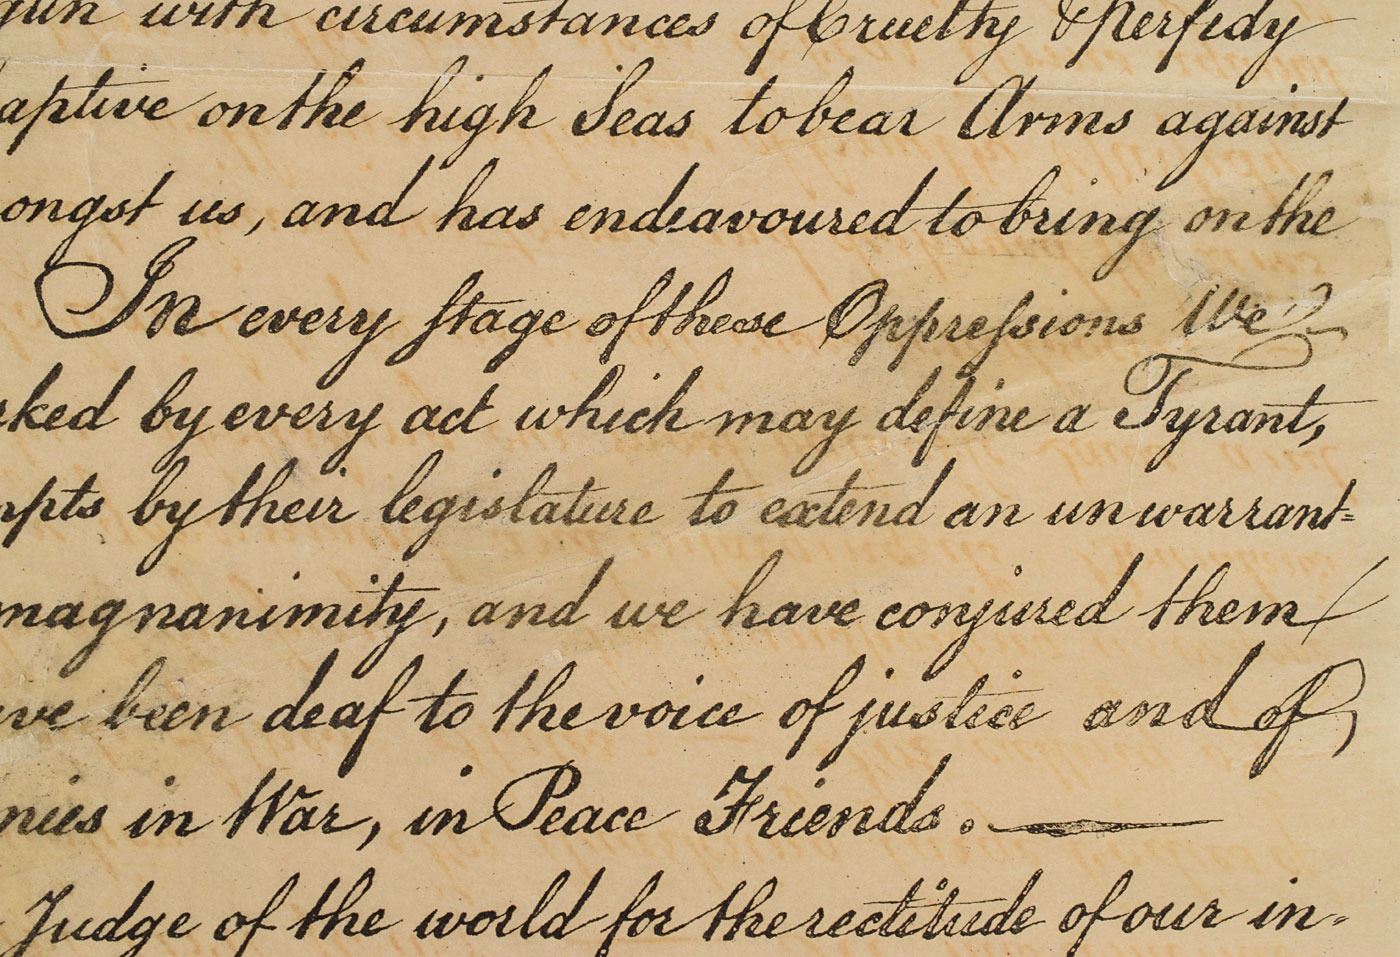 gun with circumstances of Cruelty & Perfidy
aptive on the high Seas to bear Arms against
ongst us, and has endeavoured to bring on the
In every stage of these Oppressions We
ked by every act which may define a Tyrant,
pts by their legislature to extend an unwarrant=
magnanimity, and we have conjured them
ve been deaf to the voice of justice and of
nies in War, in Peace Friends. —
Judge of the world for the rectitude of our in-